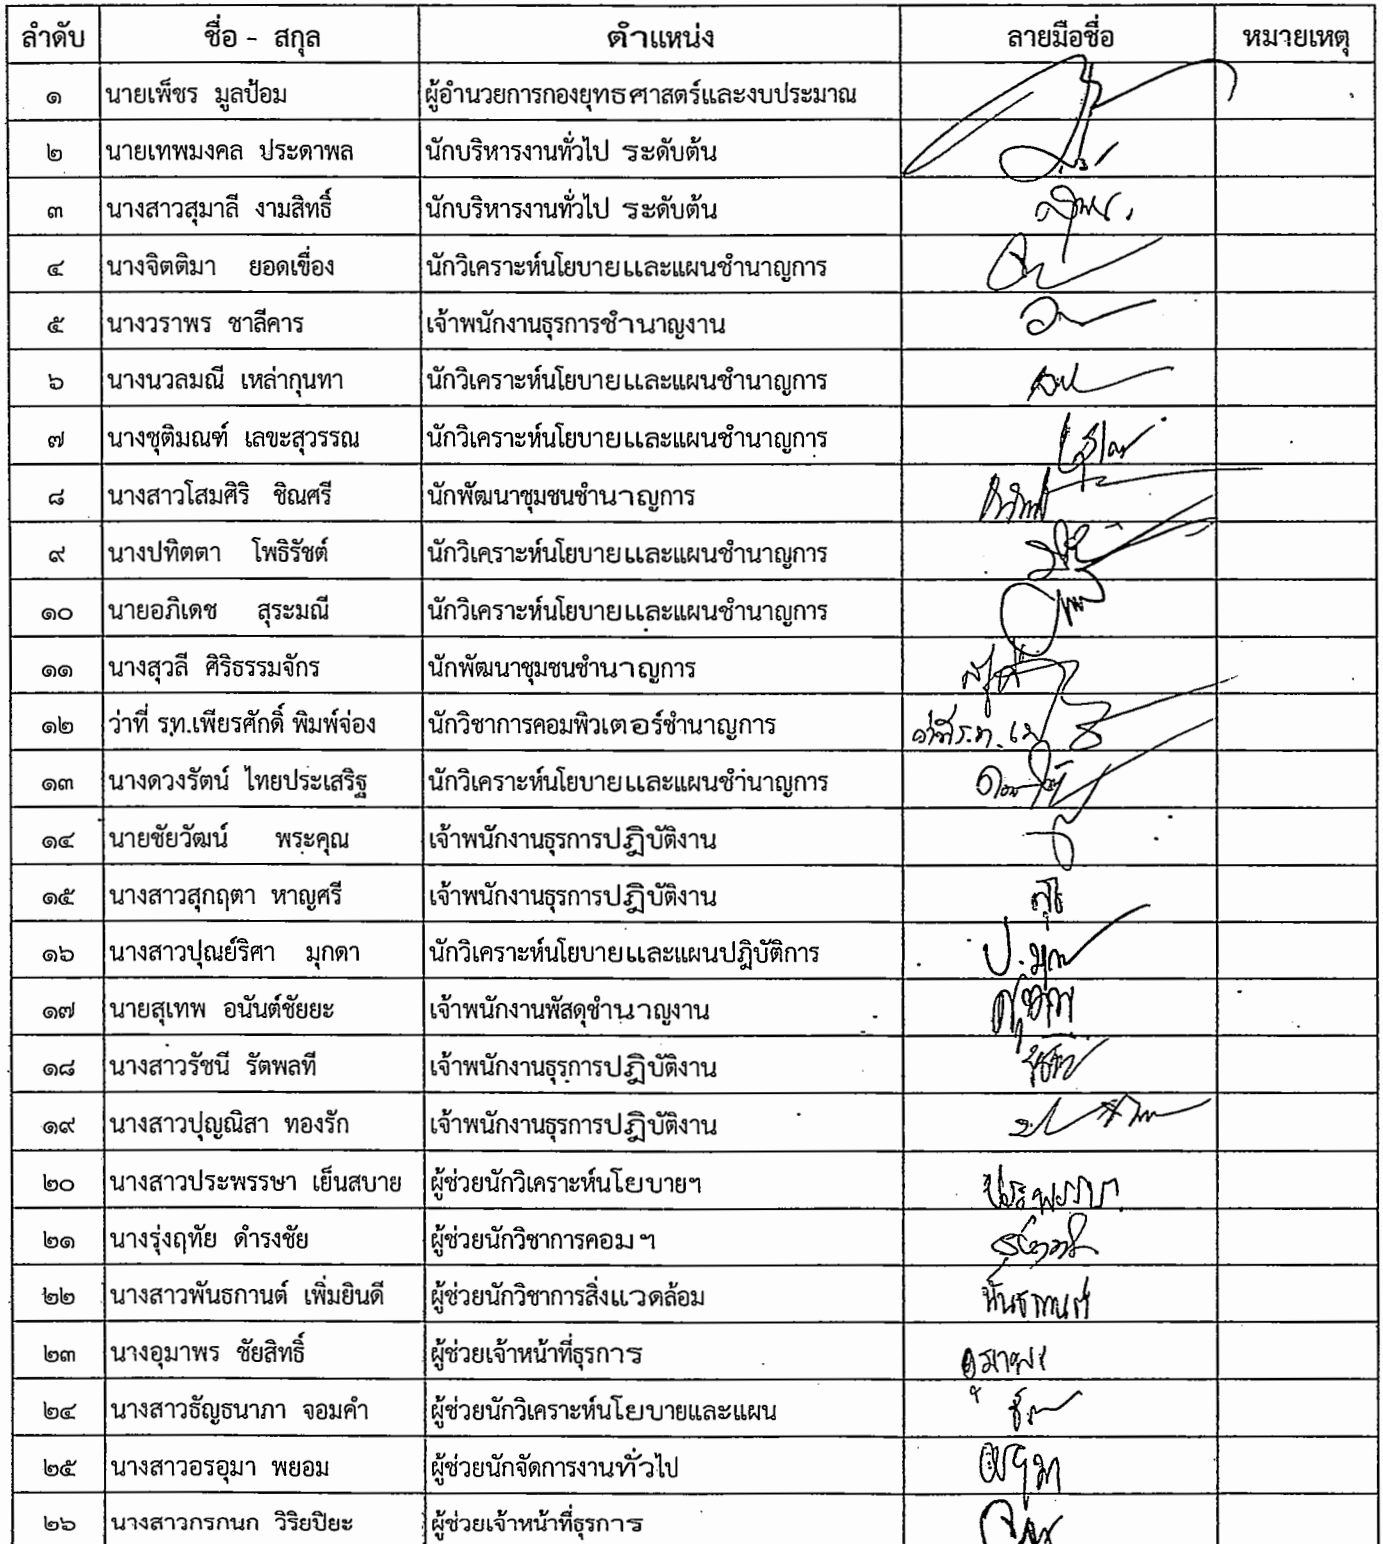 ลำดับ ชื่อ - สกุล ตำแหน่ง ลายมือชื่อ หมายเหตุ
๑ นายเพ็ชร มูลป้อม ผู้อำนวยการกองยุทธศาสตร์และงบประมาณ
๒ นายเทพมงคล ประดาพล นักบริหารงานทั่วไป ระดับต้น
๓ นางสาวสุมาลี งามสิทธิ์ นักบริหารงานทั่วไป ระดับต้น
๔ นางจิตติมา ยอดเขื่อง นักวิเคราะห์นโยบายและแผนชำนาญการ
๕ นางวราพร ชาลีคาร เจ้าพนักงานธุรการชำนาญงาน
๖ นางนวลมณี เหล่ากุนทา นักวิเคราะห์นโยบายและแผนชำนาญการ
๗ นางชุติมณฑ์ เลขะสุวรรณ นักวิเคราะห์นโยบายและแผนชำนาญการ
๘ นางสาวโสมศิริ ชิณศรี นักพัฒนาชุมชนชำนาญการ
๙ นางปทิตตา โพธิรัชต์ นักวิเคราะห์นโยบายและแผนชำนาญการ
๑๐ นายอภิเดช สุระมณี นักวิเคราะห์นโยบายและแผนชำนาญการ
๑๑ นางสุวลี ศิริธรรมจักร นักพัฒนาชุมชนชำนาญการ
๑๒ ว่าที่ ร.ท.เพียรศักดิ์ พิมพ์จ่อง นักวิชาการคอมพิวเตอร์ชำนาญการ
๑๓ นางดวงรัตน์ ไทยประเสริฐ นักวิเคราะห์นโยบายและแผนชำนาญการ
๑๔ นายชัยวัฒน์ พระคุณ เจ้าพนักงานธุรการปฏิบัติงาน
๑๕ นางสาวสุกฤตา หาญศรี เจ้าพนักงานธุรการปฏิบัติงาน
๑๖ นางสาวปุณย์ริศา มุกดา นักวิเคราะห์นโยบายและแผนปฏิบัติการ
๑๗ นายสุเทพ อนันต์ชัยยะ เจ้าพนักงานพัสดุชำนาญงาน
๑๘ นางสาวรัชนี รัตพลที เจ้าพนักงานธุรการปฏิบัติงาน
๑๙ นางสาวปุญณิสา ทองรัก เจ้าพนักงานธุรการปฏิบัติงาน
๒๐ นางสาวประพรรษา เย็นสบาย ผู้ช่วยนักวิเคราะห์นโยบายฯ
๒๑ นางรุ่งฤทัย ดำรงชัย ผู้ช่วยนักวิชาการคอมฯ
๒๒ นางสาวพันธกานต์ เพิ่มยินดี ผู้ช่วยนักวิชาการสิ่งแวดล้อม พันธกานต์
๒๓ นางอุมาพร ชัยสิทธิ์ ผู้ช่วยเจ้าหน้าที่ธุรการ อุมาพร
๒๔ นางสาวธัญธนาภา จอมคำ ผู้ช่วยนักวิเคราะห์นโยบายและแผน
๒๕ นางสาวอรอุมา พยอม ผู้ช่วยนักจัดการงานทั่วไป
๒๖ นางสาวกรกนก วิริยปิยะ ผู้ช่วยเจ้าหน้าที่ธุรการ